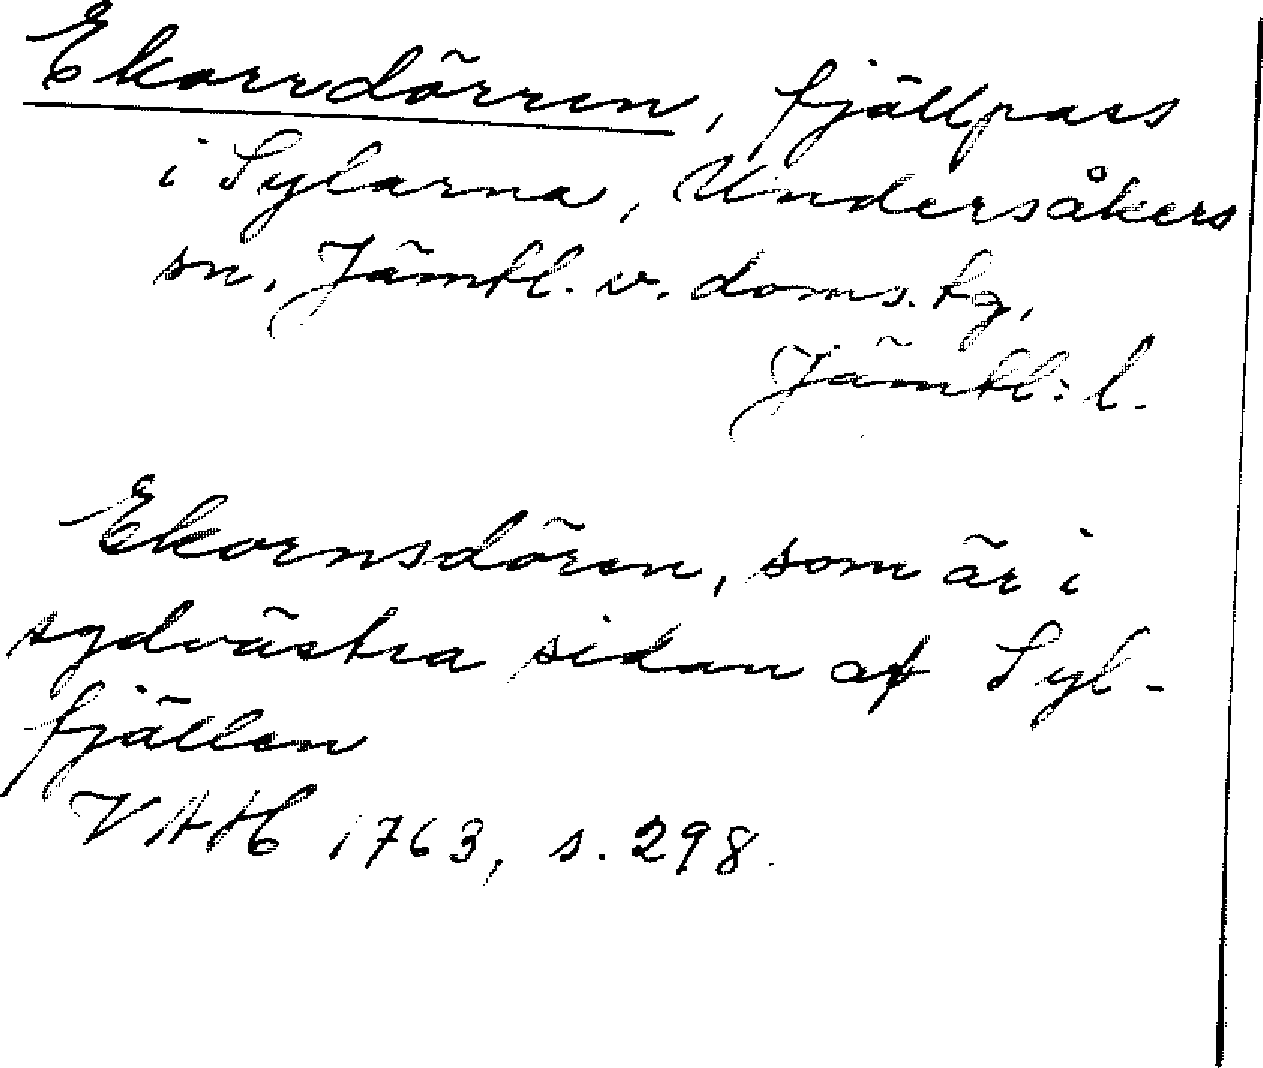 Ekorrdörren, fjällpass
i Sylarna, Undersåkers
sn. Jämtl. v. doms. tg.
Jämtl:s l.
Ekornsdören, som är i
sydvästra sidan af Syl-
fjällen
VAH 1763, s. 298.